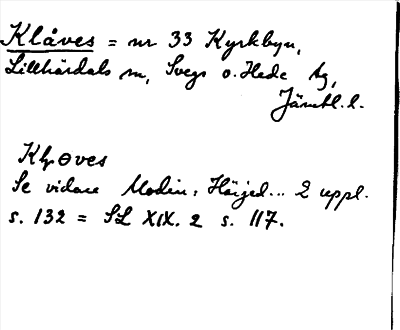 Klåves = nr 33 Kyrkbyn,
Lillhärdals sn, Svegs o. Hede tg,
Jämtl. l.
Klp θves
Se vidare Modin, Härjed... 2 uppl.
s. 132 = SL XIX. 2 s. 117.